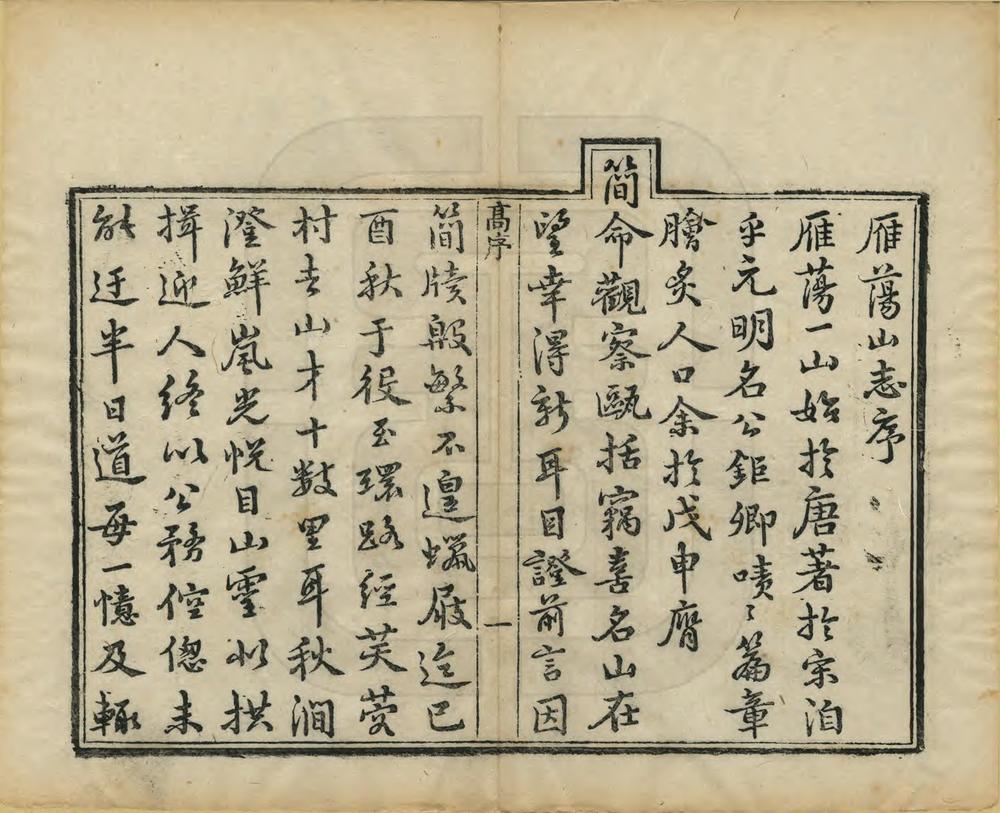 雁蕩山志序
雁蕩一山始扵唐著扵宋洎
乎元明名公鉅卿嘖〻篇章
膾炙人口余扵戊申膺
簡命觀察甌括竊喜名山在
望幸得新耳目證前言因
髙序
一
簡牘殷繁不遑蠟屐迄己
酉秋于役玉環路經芙蓉
村去山才十數里耳秋澗
澄鮮嵐光悅目山靈似拱
揖迎人終以公務倥偬未
能迂半日道每一憶及輒